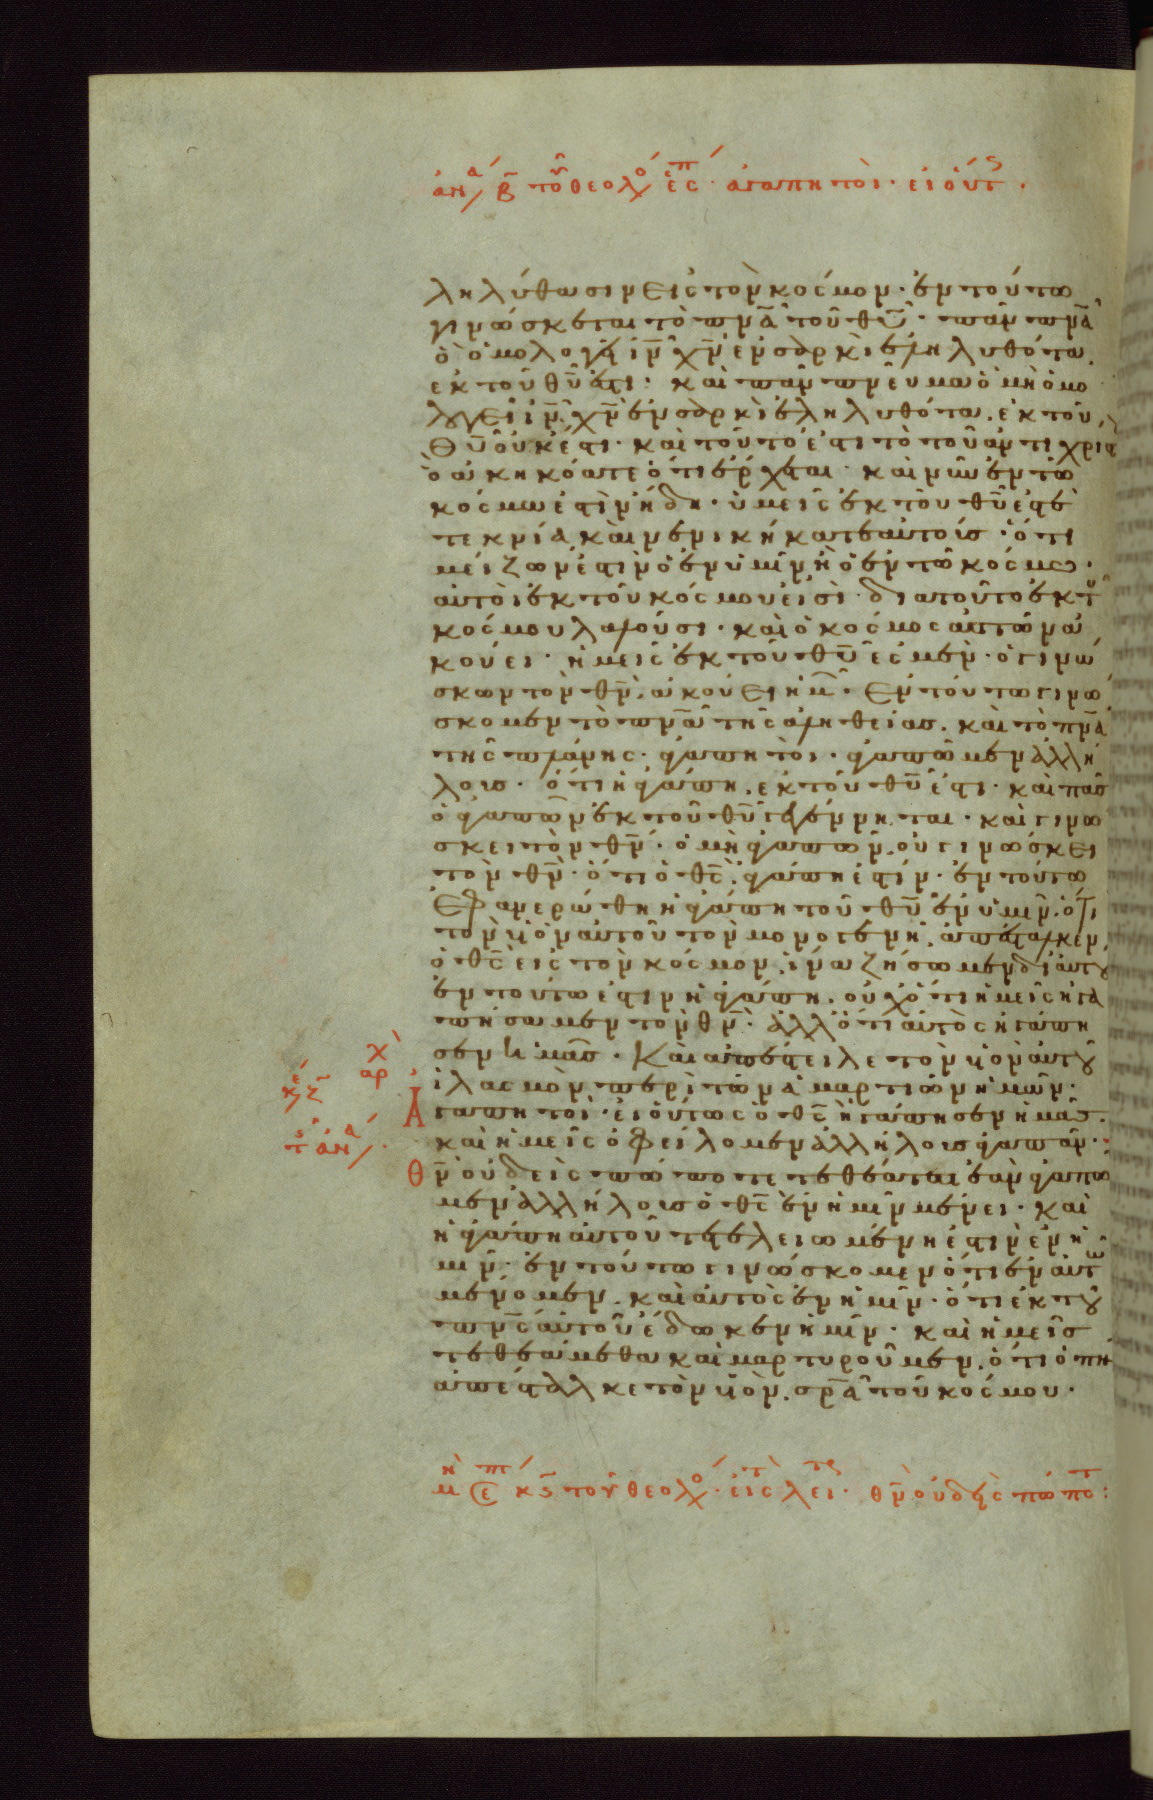 ἀνά β τοῦ θεολό ἐπς · ἀγαπητοὶ · εἰ οὕτς ·
ληλύθωσιν εἰς τὸν κόσμον · ἐν τούτω
γινώσκεται τὸ πνᾶ τοῦ θῦ · πᾶν πνᾶ
ὃ ὁμολογεῖ ιν χν ἐν σαρκὶ ἐληλυθότα,
ἐκ τοῦ θῦ ἐστι · καὶ πᾶν πνεῦμα ὃ μὴ ὁμο
λογεῖ ιν χν ἐν σαρκὶ ἐληλυθότα, ἐκ τοῦ
θῦ οὐκ ἔστι · καὶ τοῦτό ἐστι τὸ τοῦ ἀντιχρίστ
ὃ ἀκηκόατε ὅτι ἔρχεται · καὶ νῦν ἐν τῶ
κόσμω ἐστὶν ἤδη · ὑμεῖς ἐκ τοῦ θῦ ἐστὲ
τεκνία, καὶ νενικήκατε αὐτοίς · ὅτι
μείζων ἐστὶν ὁ ἐν ὑμῖν ἢ ὁ ἐν τῶ κόσμω ·
αὐτοὶ ἐκ τοῦ κόσμου εἰσὶ · διατοῦτο ἐκ τοῦ
κόσμου λαλοῦσι · καὶ ὁ κόσμος αὐτῶν ἀ
κούει · ἡμεῖς ἐκ τοῦ θῦ ἐσμὲν · ὁ γινώ
σκων τὸν θν, ἀκούει ἡμ · ἐν τούτω γινώ
σκομεν τὸ πνᾶ τῆς ἀληθείας, καὶ τὸ πνᾶ
τῆς πλάνης · ἀγαπητοὶ · ἀγαπῶμεν ἀλλή
λοις · ὅτι ἡ ἀγάπη, ἐκ τοῦ θῦ ἐστι · καὶ πᾶς
ὁ ἀγαπῶν ἐκ τοῦ θῦ γεγέννηται · καὶ γινώ
σκει τὸν θν · ὁ μὴ ἀγαπῶν, οὐ γινώσκει
τὸν θν · ὅτι ὁ θς, ἀγάπη ἐστίν · ἐν τούτω
ἐφανερώθη ἡ ἀγάπη τοῦ θῦ ἐν ὑμῖν, ὅτι
τὸν υἱὸν αὐτοῦ τὸν μονογενῆ, ἀπέσταλκεν
ὁ θς εἰς τὸν κόσμον, ἵνα ζήσωμεν δι αὐτοῦ
ἐν τούτω ἐστὶν ἡ ἀγάπη, οὐχ ὅτι ἡμεῖς ἠγα
πήσαμεν τὸν θν · ἀλλ ὅτι αὐτὸς ἠγάπη
σεν ἡμᾶς · καὶ ἀπέστειλε τὸν υἱὸν αὐτοῦ
χ
αρ
ἱλασμὸν περὶ τῶν ἁμαρτιῶν ἡμῶν ·
Ἀγαπητοὶ · εἰ οὕτως ὁ θς ἠγάπησεν ἡμᾶς ·
καὶ ἡμεῖς ὀφείλομεν ἀλλήλοις ἀγαπᾶν ·
θν οὐδεὶς πώποτε τεθέαται ἐὰν ἀγαπῶ
μεν ἀλλήλοις ὁ θς ἐν ἡμῖν μένει · καὶ
ἡ ἀγάπη αὐτοῦ τετελειωμένη ἐστὶν ἐν ἡ
μῖν · ἐν τούτω γινώσκομεν ὅτι ἐν αὐτῶ
μένομεν, καὶ αὐτὸς ἐν ἡμῖν · ὅτι ἐκ τοῦ
πνς αὐτοῦ ἔδωκεν ἡμῖν · καὶ ἡμεῖς
τεθεάμεθα καὶ μαρτυροῦμεν, ὅτι ὁ πηρ
ἀπέσταλκε τὸν υἱὸν, σρᾶ τοῦ κόσμου ·
τοῦ θεολό · εἰς λει · θν οὐδεὶς πώποτ :